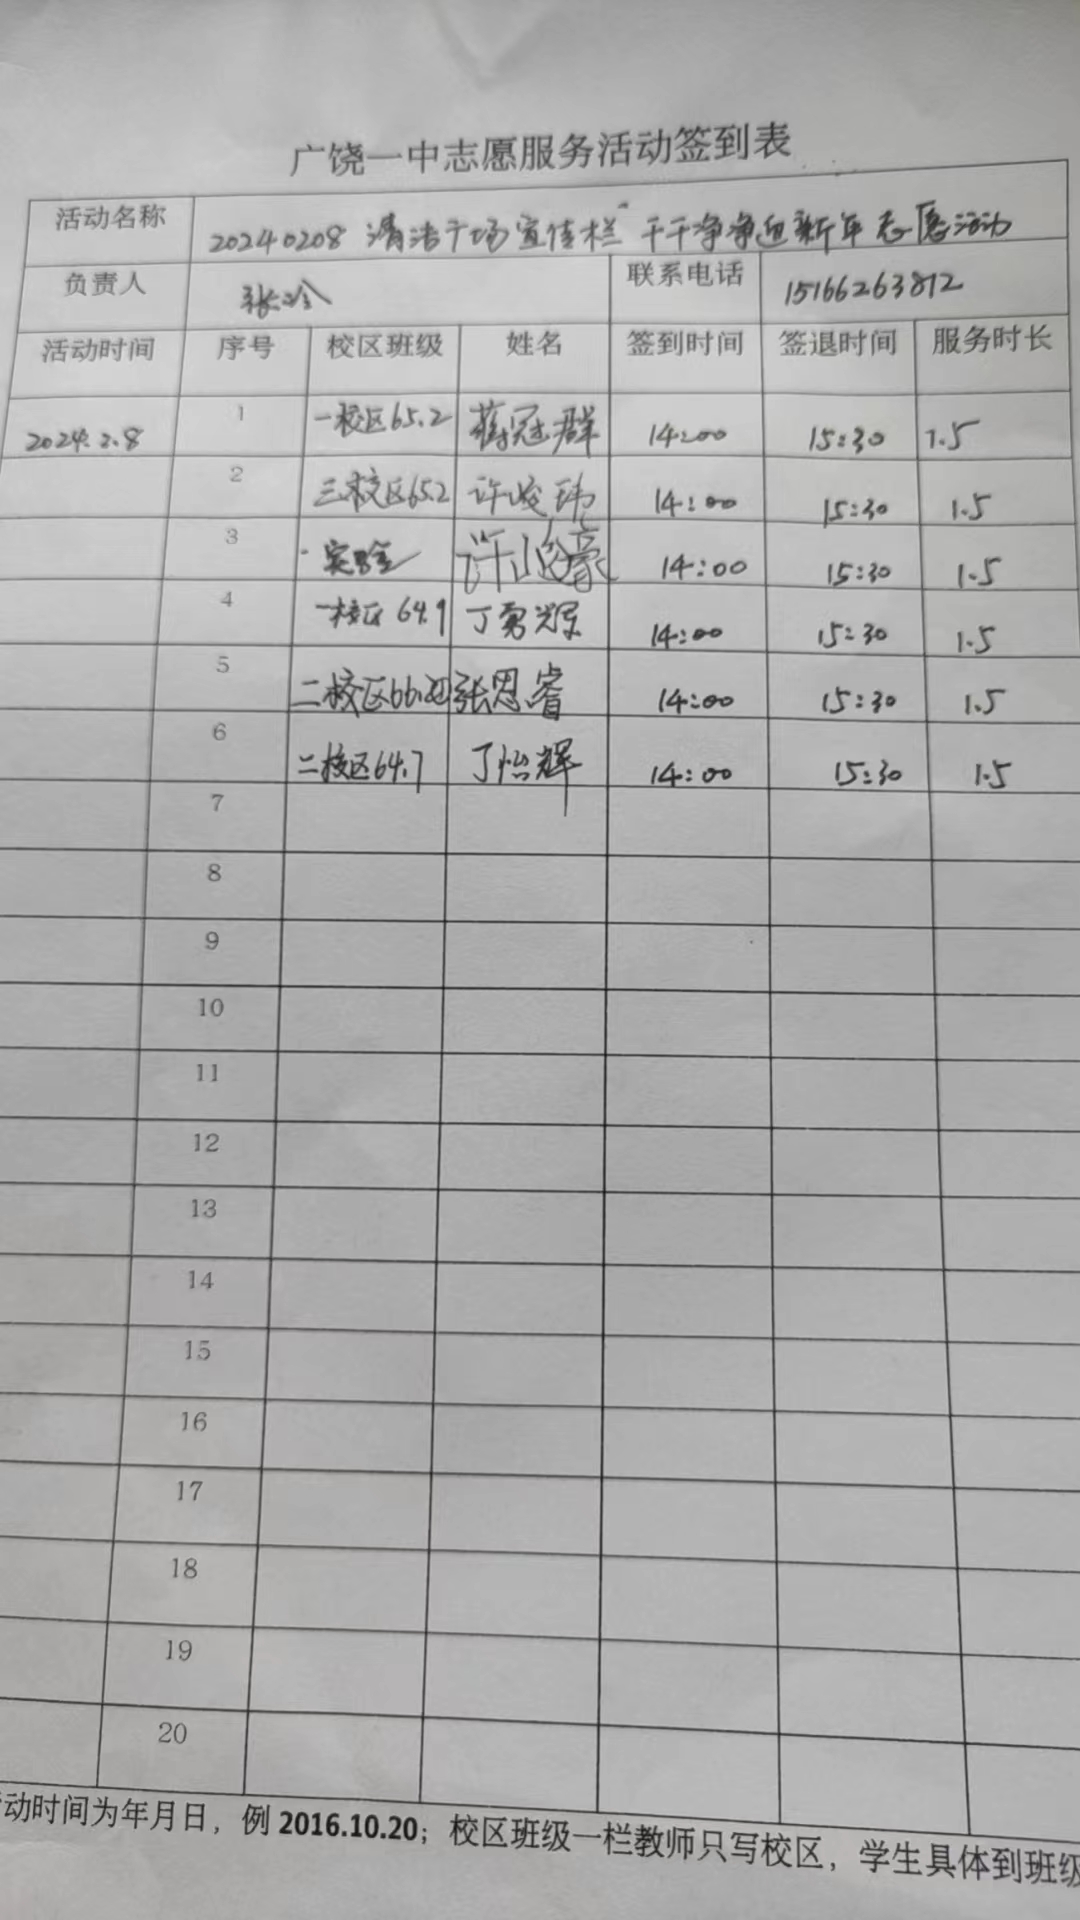 广饶一中志愿服务活动签到表
活动名称 20240208 清洁广场宣传栏“干干净净迎新年志愿活动
负责人 张冷 联系电话 15166263812
活动时间 序号 校区班级 姓名 签到时间 签退时间 服务时长
2024.2.8 1 一校区65.2 蒋冠群 14:00 15:30 1.5
2 三校区65.2 许峻玮 14:00 15:30 1.5
3 实验 许峻豪 14:00 15:30 1.5
4 一校区 64.9 丁勇耀 14:00 15:30 1.5
5 二校区66. 张恩睿 14:00 15:30 1.5
6 二校区64.7 丁怡辉 14:00 15:30 1.5
7
8
9
10
11
12
13
14
15
16
17
18
19
20
动时间为年月日，例 2016.10.20；校区班级一栏教师只写校区，学生具体到班级